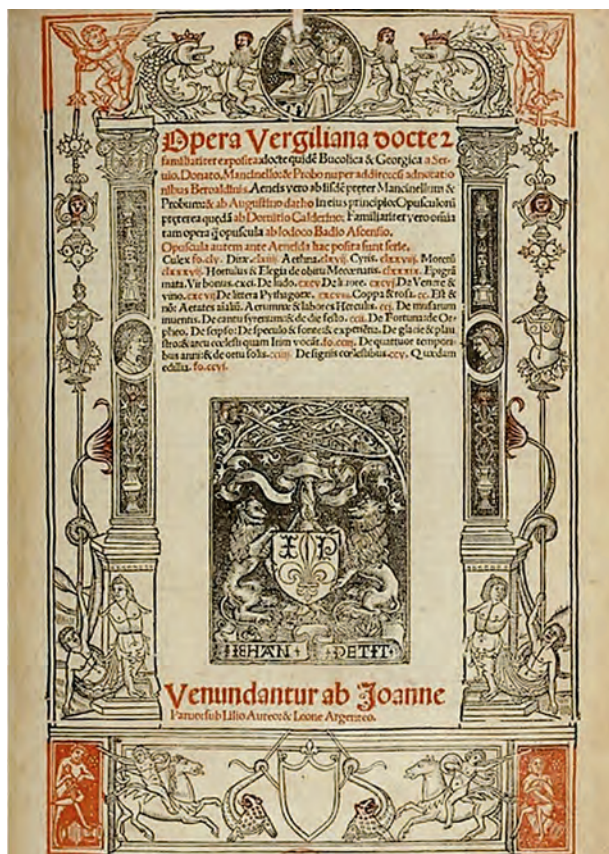 Opera Vergiliana docte ⁊
familiariter exposita: docte quidẽ Bucolica & Georgica a Ser-
uio. Donato. Mancinello: & Probo nuper addito: cũ adnotatio
nibus Beroaldinis. Aeneis vero ab iisdẽ preter Mancinellum &
Probum: & ab Augustino datho in eius principio: Opusculorũ
preterea quedã ab Domitio Calderino: Familiariter vero omnia
tam opera q̃ opuscula ab Iodoco Badio Ascensio.
Opuscula autem ante Aeneida hac posita sunt serie.
Culex fo. clv. Diræ. Aethna. clxvij. Cyris. clxxviij. Moretũ
clxxxviij. Hortulus & Elegia de obitu Mecœnatis. clxxxix. Epigrã
mata. Vir bonus. cxci. De ludo. cxcv De liuore. cxcvj De Venere &
vino. cxcvij De littera Pythagoræ. cxcviij. Coppa & rosa. cc. Est &
nõ: Aetates aialiũ. Aerumnæ & labores Herculis. ccj. De musarum
inuentis. De cantu syrenarum: & de die festo. ccij. De Fortuna: de Or-
pheo. De seipso: De speculo & fonte: & De glacie & plau
stro: & arcu cœlesti quam Irim vocãt. fo. cciij. De quattuor tempori
bus anni: & de ortu solis. cciiij. De signis cœlestibus. ccv. Quædam
edillia. fo. ccvi.
I P
IEHAN PETIT
Venundantur ab Joanne
Paruo: sub Lilio Aureo: & Leone Argenteo.